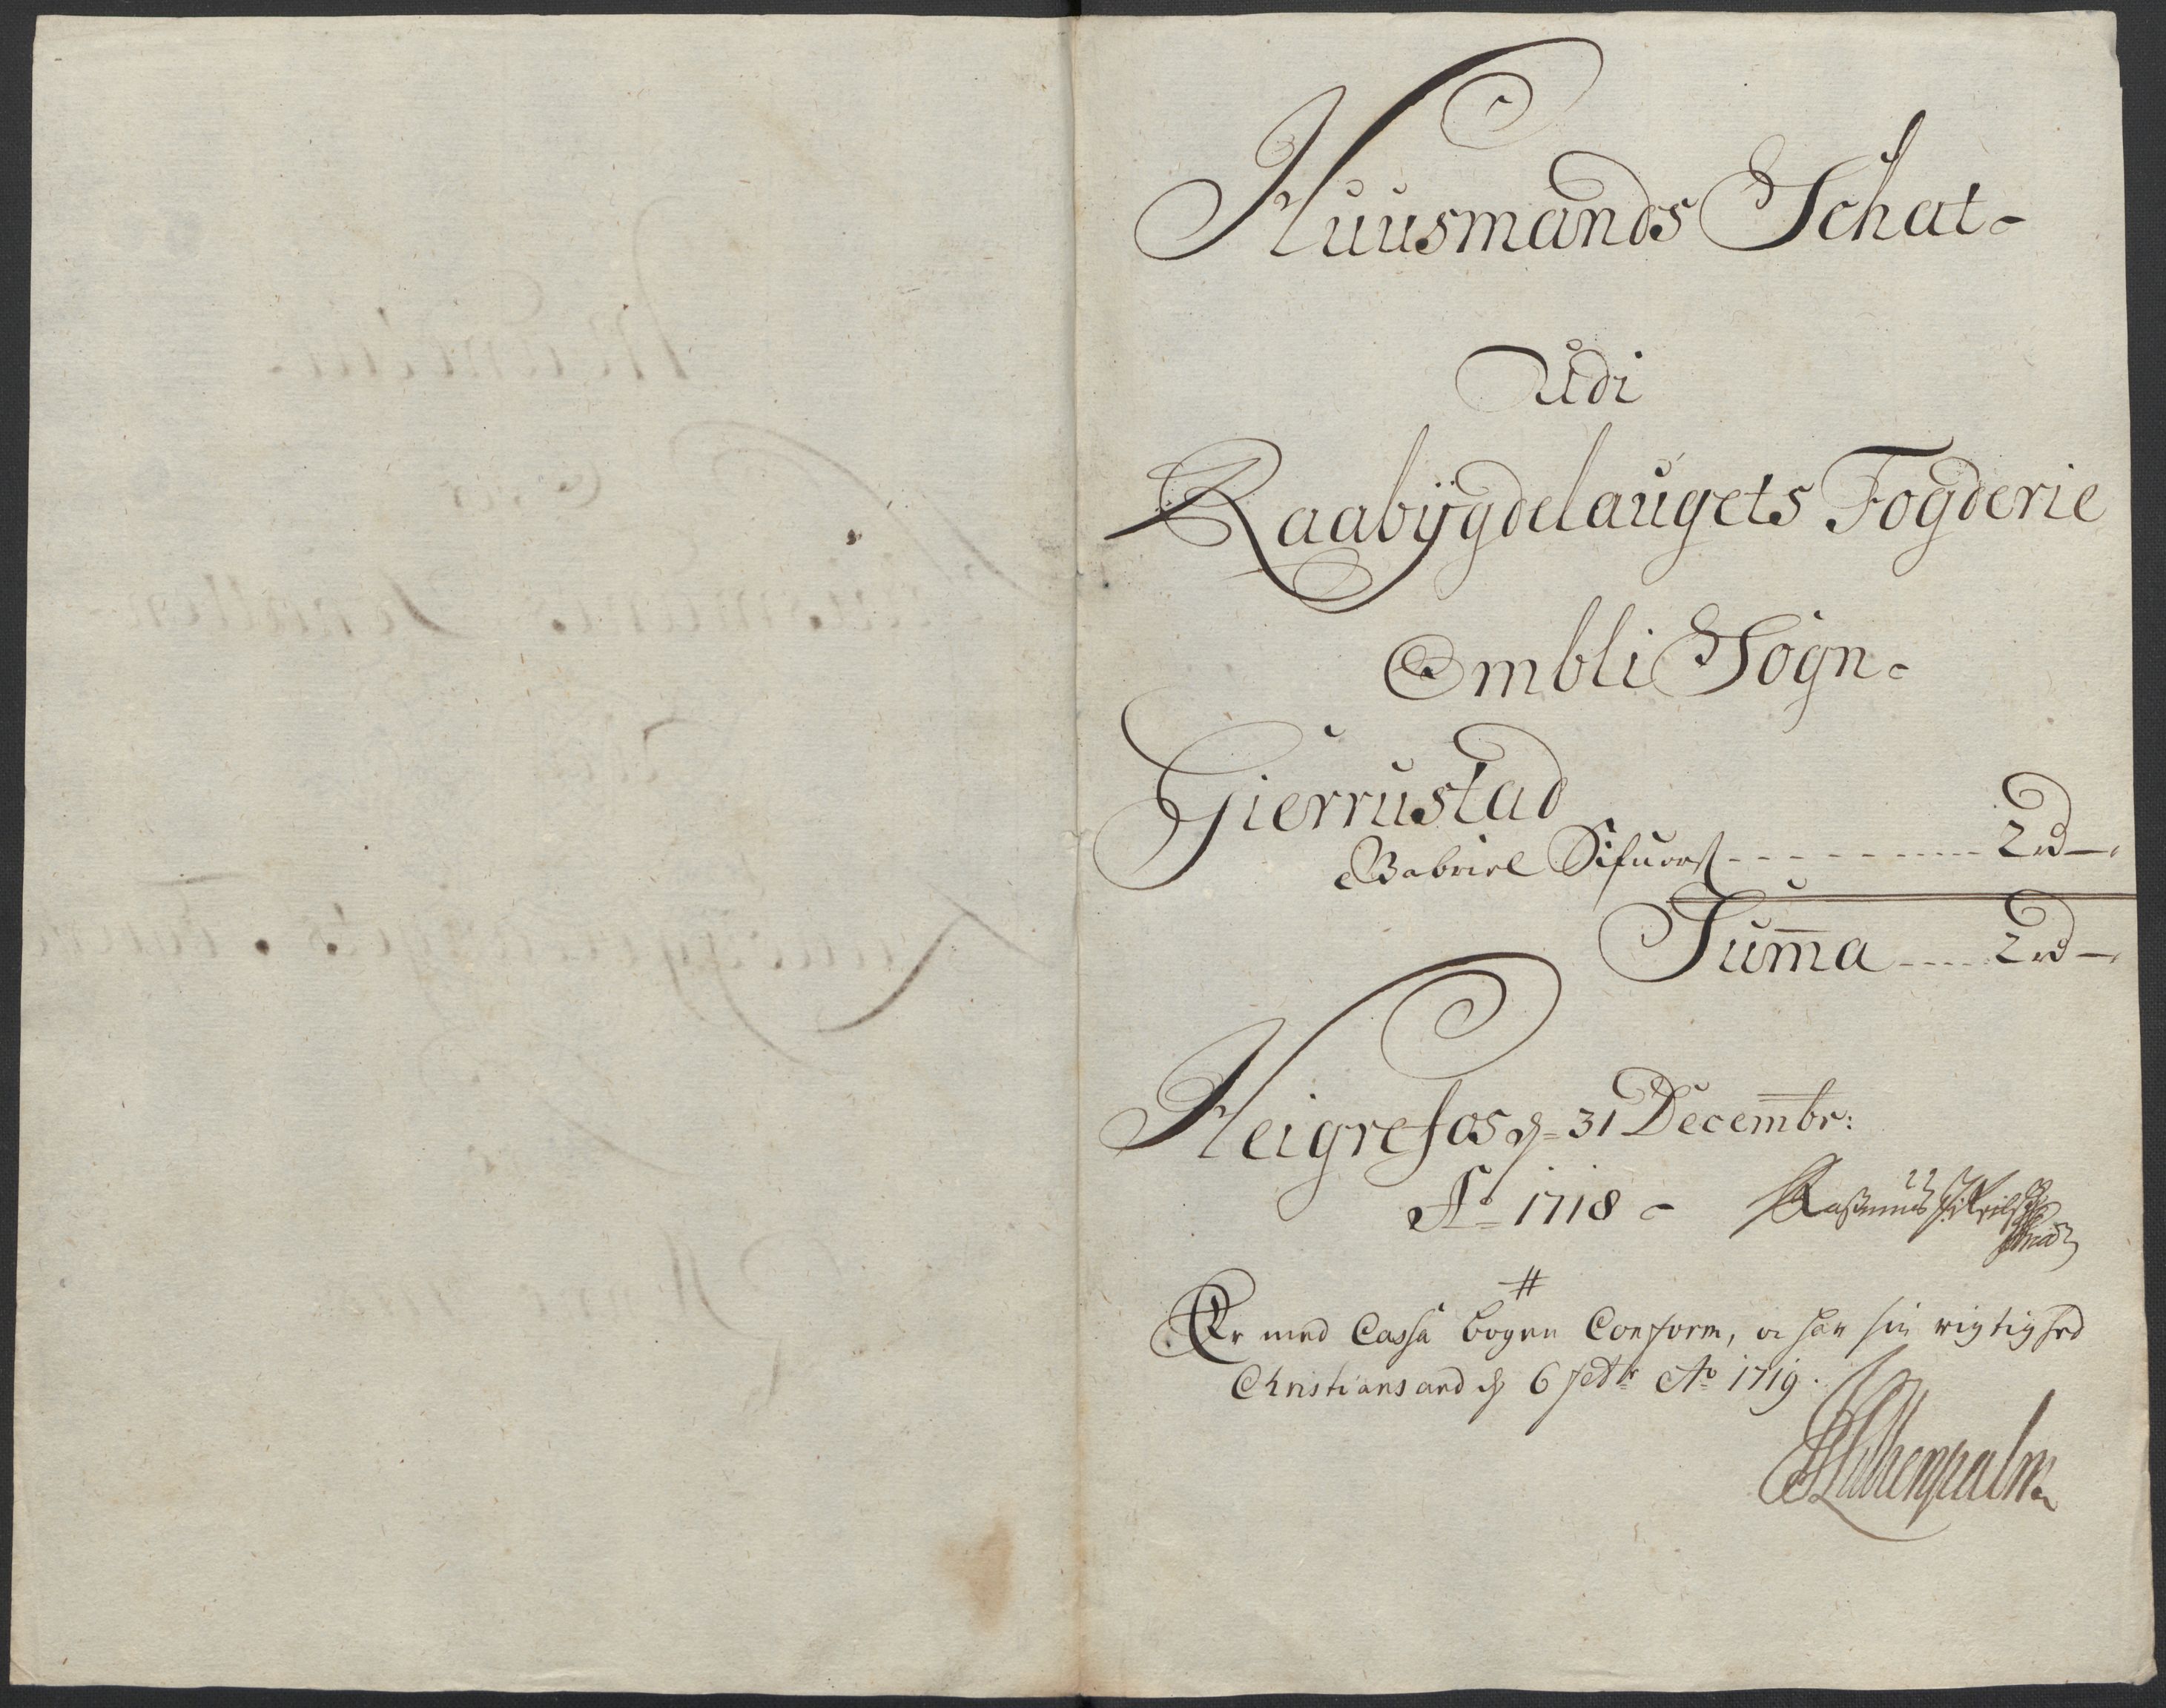 Huusmands Schat
Udi
Raabÿgdelaugets Fogderie
Ombli Sogn
Gierrustad
Gabriel Sifuers: - - - 2 rd —
Sum̄a - - - 2 rd —
Heigrefos d: 31 Decem̄br:
Ao 1718
Rasmus
Er med Cassa bogen Conform, og har sin rigtighed
Christiansand d: 6 Ao 1719.